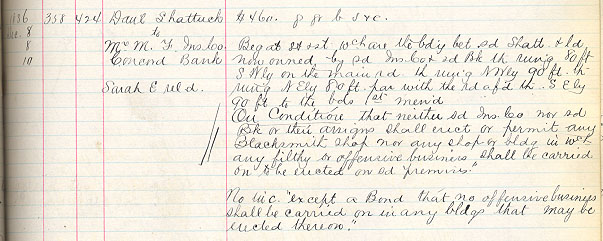 136 358 424 Danl Shattuck $460. g g b s & c.
Dec. 8 to
8 Mdx M. F. Ins. Co. Beg at st & st wch are the bdy bet sd Shatt. & ld
10 Concord Bank now owned by sd Ins. Co & sd Bk th run'g 80 ft
S Wly on the main rd. th run'g N Wly 90 ft. th
Sarah E rel d. run'g N Ely 80 ft par with the rd af'd th S Ely
90 ft to the bds 1st ment'd
On Condition that neither sd Ins. Co nor sd
Bk or their assigns shall erect or permit any
Blacksmith Shop nor any shop or bldg in wch
any filthy or offensive business shall be carried
on to be erected on sd "premises."
No inc. "except a Bond that no offensive business
shall be carried on in any bldgs that may be
erected thereon."